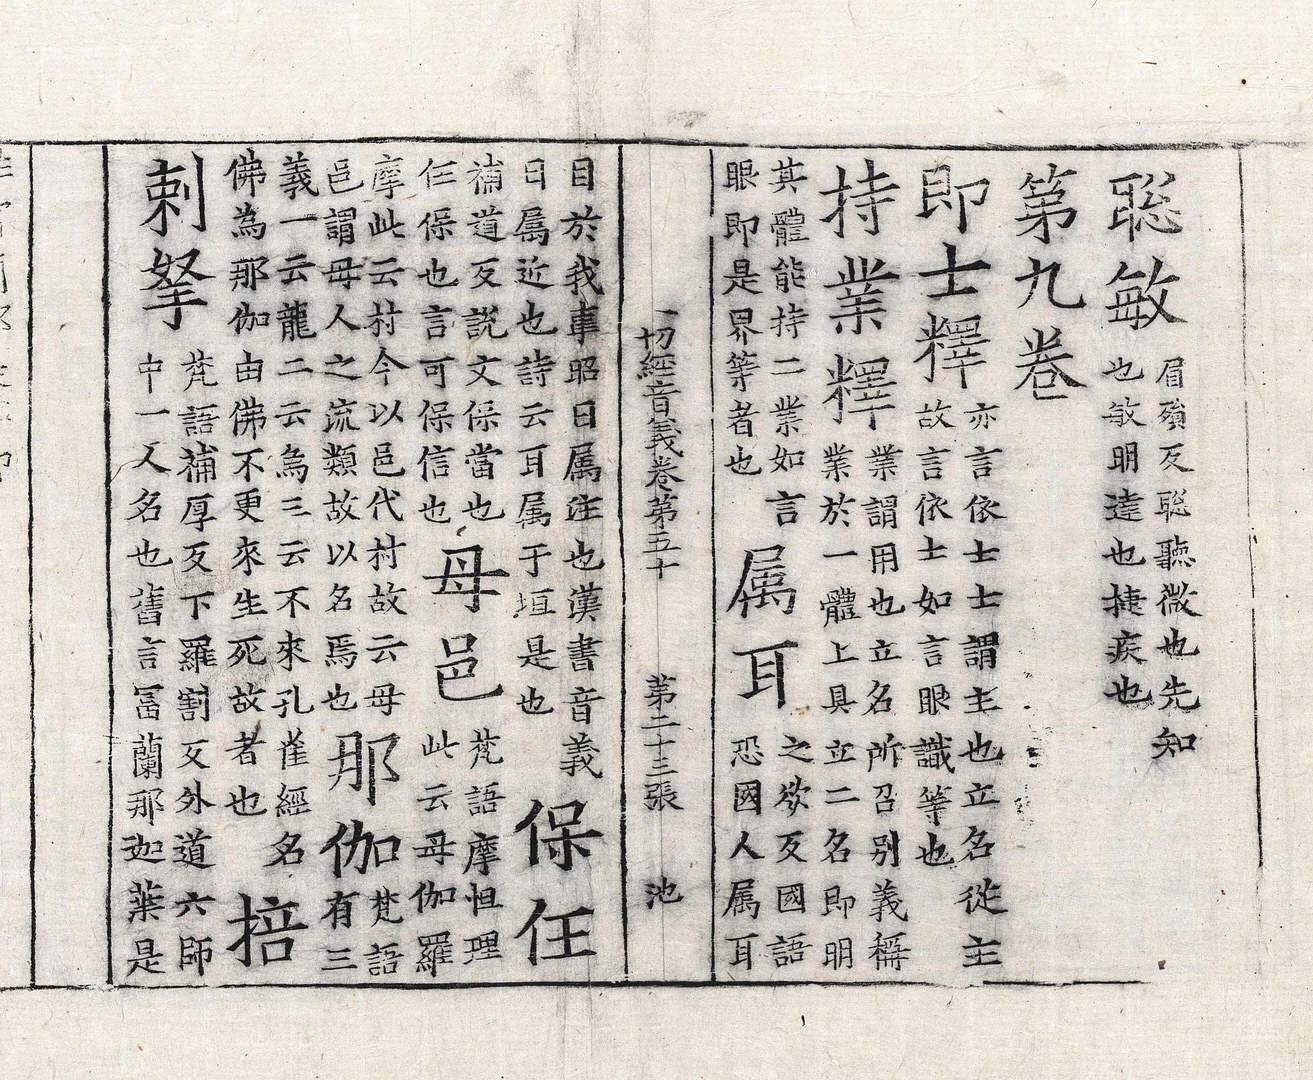 聡敏
眉殞反聡聽微也先知
也敏明達也捷疾也
第九卷
即士釋
亦言依士士謂主也立名從主
故言依士如言眼識等也
持業釋
業謂用也立名所召別義稱
業於一體上具立二名即明
其體能持二業如言
眼即是界等者也
属耳
之欲反國語
恐國人属耳
一切經音義卷第五十 第二十三張 池
目於我韋昭曰属注也漢書音義
曰属近也詩云耳属于垣是也
保任
補道反説文保當也
任保也言可保信也
母邑
梵語摩怛理
此云母伽羅
摩此云村今以邑代村故云母
邑謂母人之流類故以名焉也
那伽
梵語
有三
義一云龍二云為三云不來孔雀經名
佛為那伽由佛不更來生死故者也
掊
剌拏
梵語補厚反下羅割反外道六師
中一人名也舊言冨蘭那迦葉是